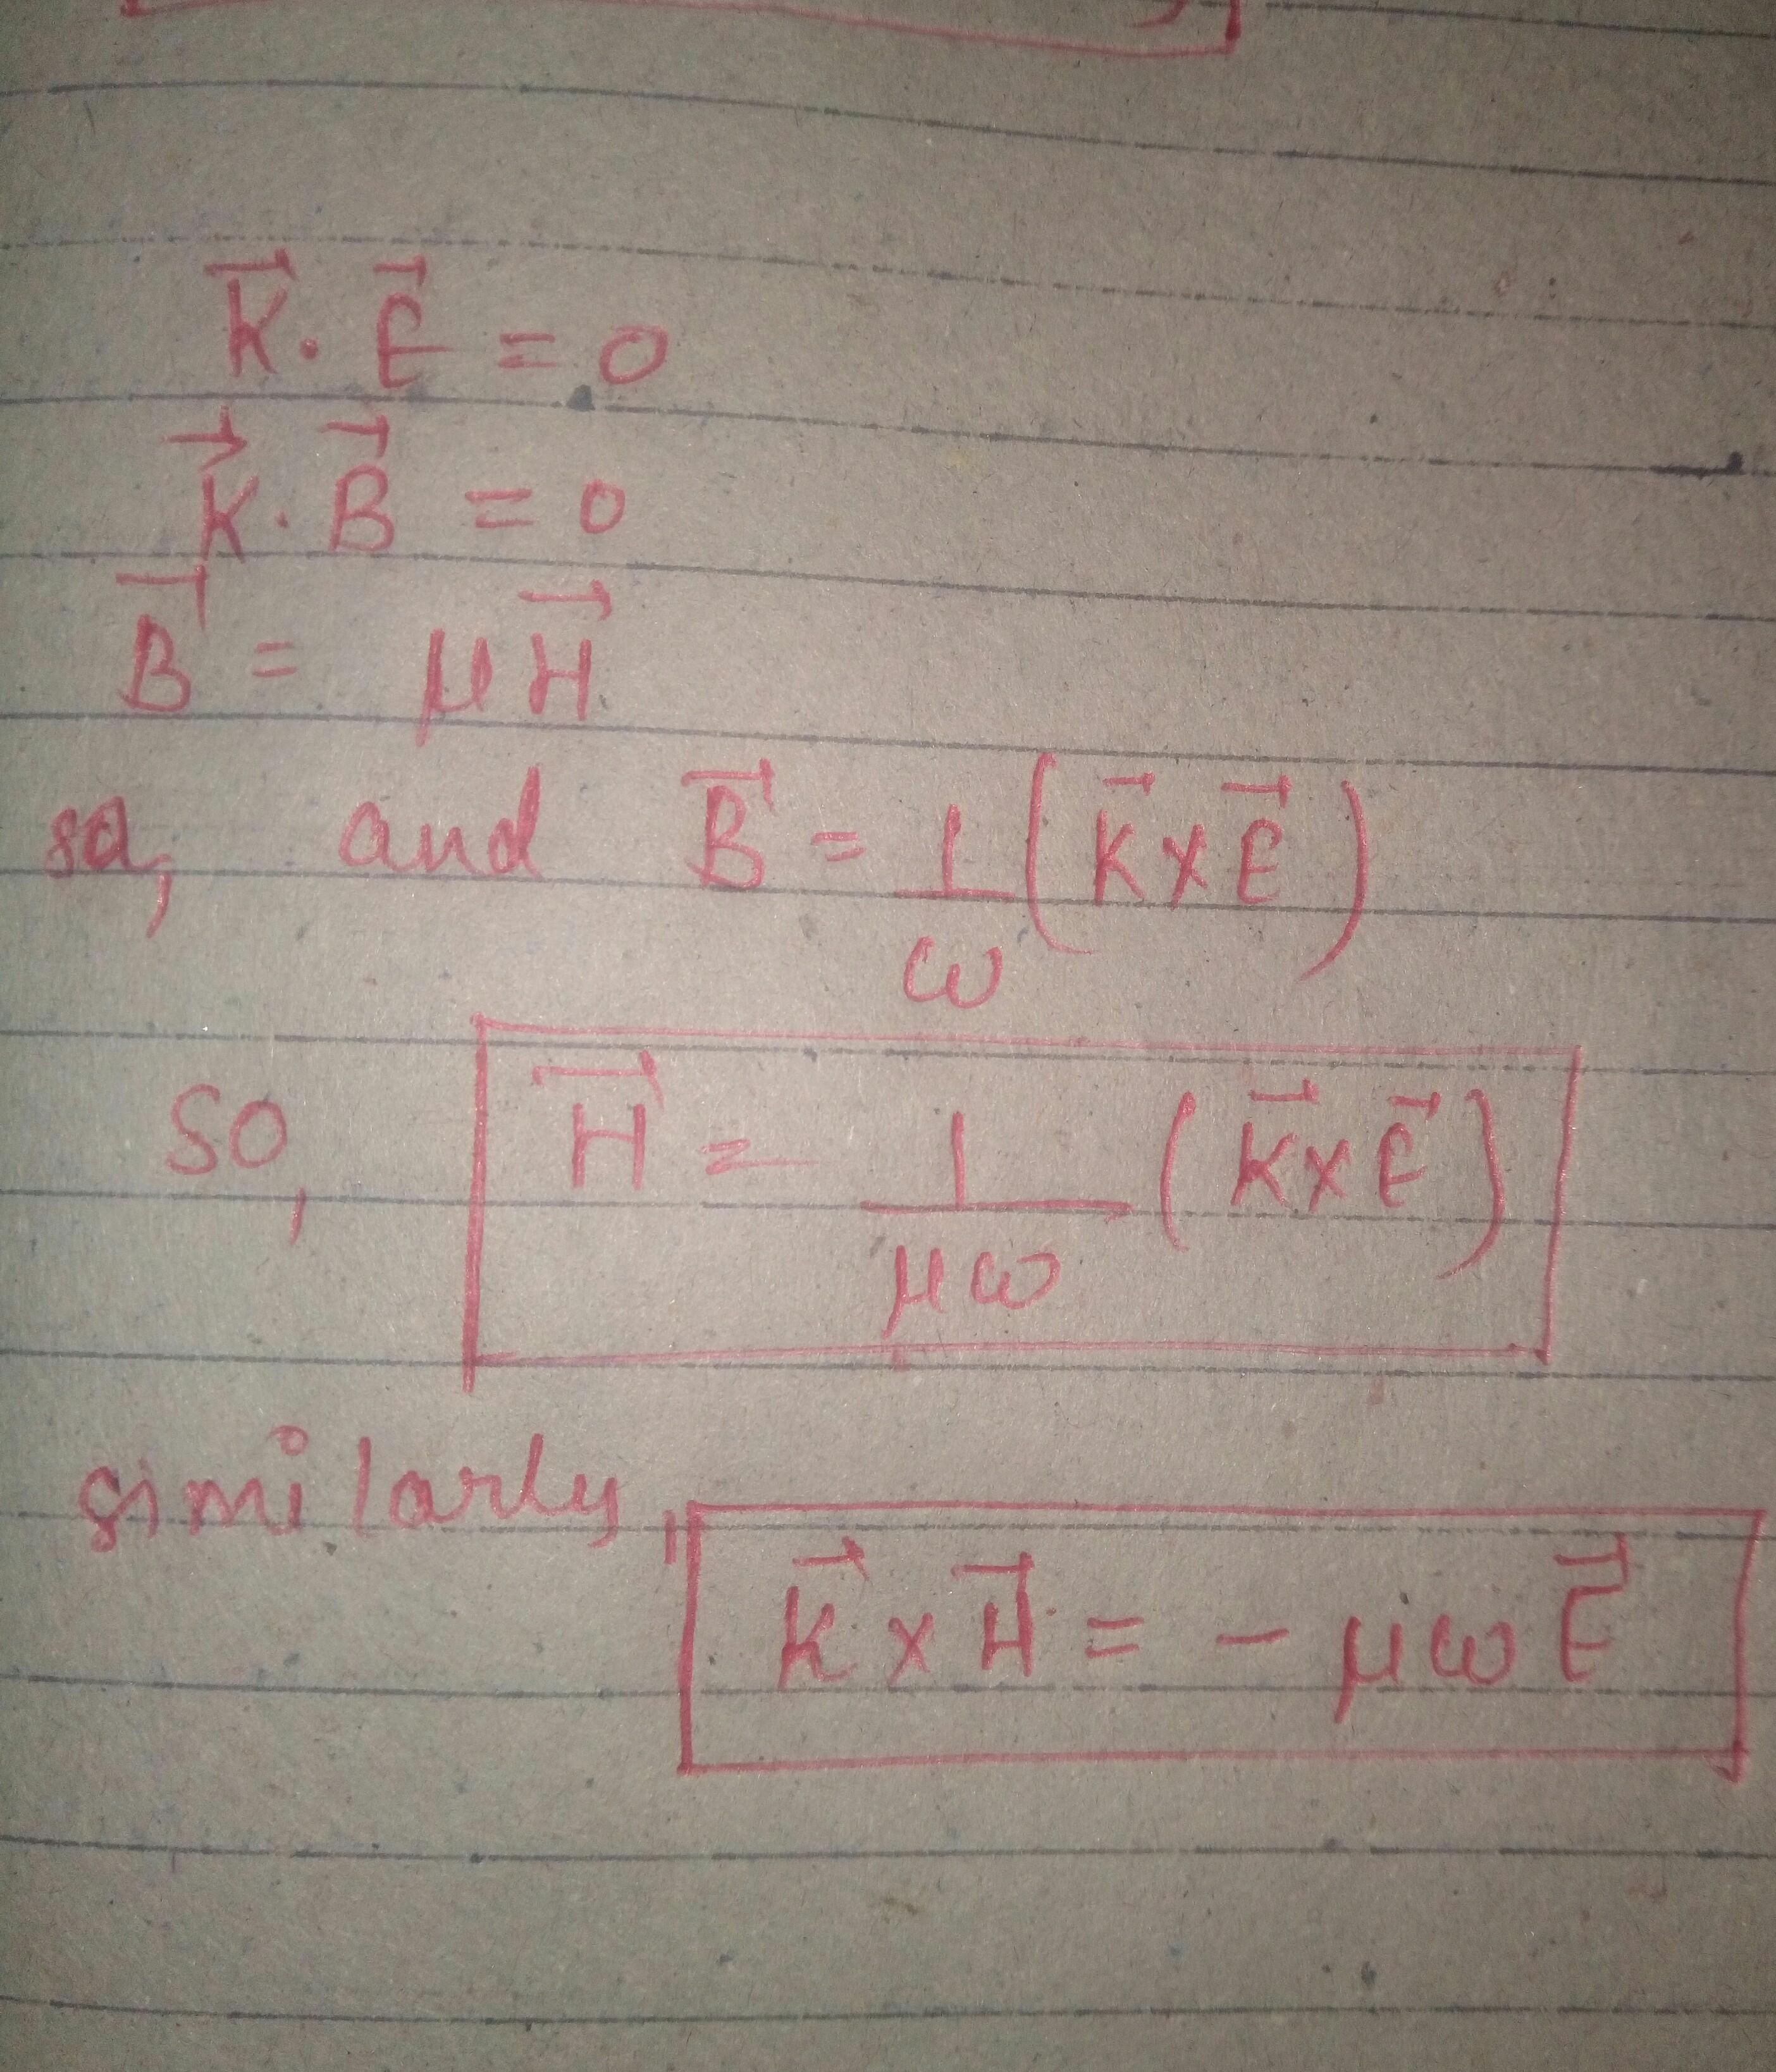 K⃗ · E⃗ = 0
K⃗ · B⃗ = 0
B⃗ = μH⃗
so, and B⃗ = 1/ω (K⃗ × E⃗)
so, H⃗ = 1/μω (K⃗ × E⃗)
similarly, K⃗ × H⃗ = - μωE⃗